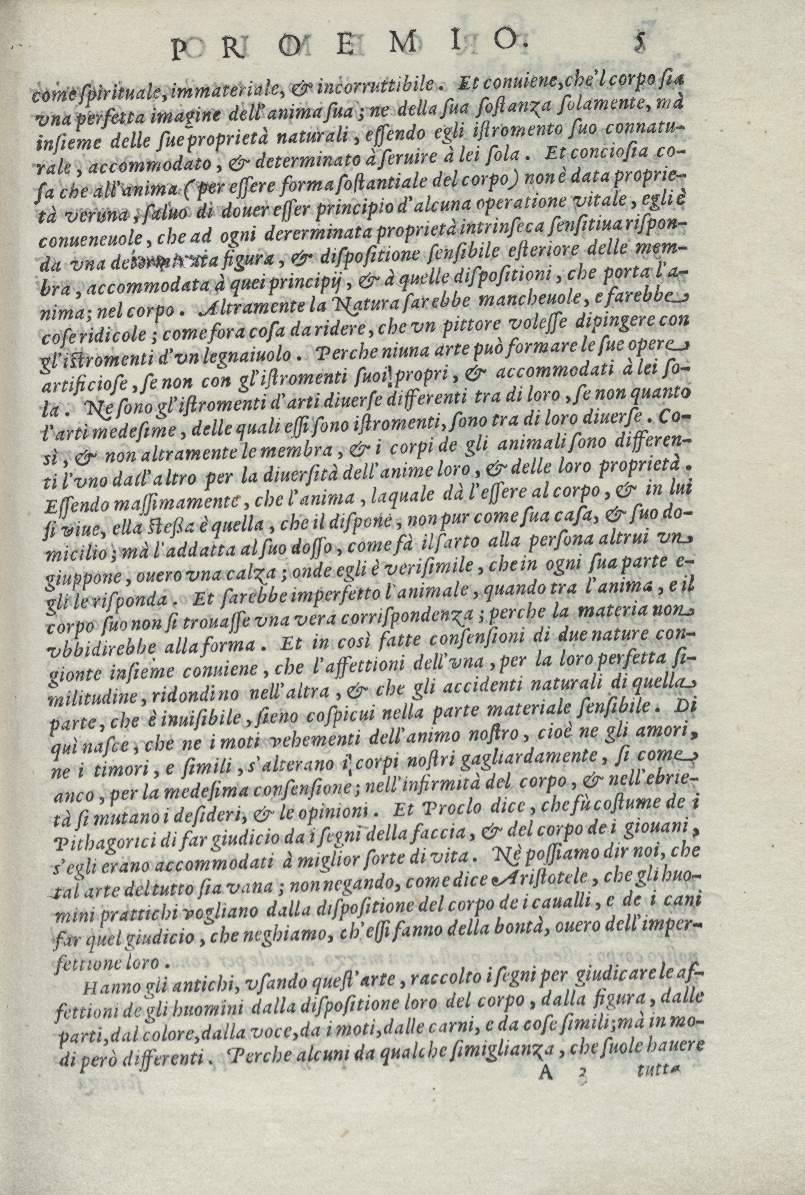 PROEMIO. 5
come ſpirituale, immateriale, & incorruttibile. Et conuiene, che'l corpo ſia
vna perfetta imagine dell'anima ſua; ne della ſua ſoſtanza ſolamente, mà
inſieme delle ſue proprietà naturali, eſſendo egli iſtromento ſuo connatu-
rale, accommodato, & determinato à ſeruire à lei ſola. Et concioſia co-
ſa che all'anima (per eſſere forma ſoſtantiale del corpo) non è data proprie-
tà veruna, ſaluo di douer eſſer principio d'alcuna operatione vitale, egli è
conueneuole, che ad ogni dererminata proprietà intrinſeca ſenſitiua riſpon-
da vna determinata figura, & diſpoſitione ſenſibile eſteriore delle mem-
bra, accommodata à quei principij, & à quelle diſpoſitioni, che porta l'a-
nima; nel corpo. Altramente la Natura ſarebbe mancheuole, e farebbe
coſe ridicole; come fora coſa da ridere, che vn pittore voleſſe dipingere con
gl'iſtromenti d'vn legnaiuolo. Perche niuna arte può formare le ſue opere
artificioſe, ſe non con gl'iſtromenti ſuoi propri, & accommodati à lei ſo-
la. Ne ſono gl'iſtromenti d'arti diuerſe differenti tra di loro, ſe non quanto
l'arti medeſime, delle quali eſſi ſono iſtromenti, ſono tra di loro diuerſe. Co-
sì, & non altramente le membra, & i corpi de gli animali ſono differen-
ti l'vno dall'altro per la diuerſità dell'anime loro, & delle loro proprietà.
Eſſendo maſſimamente, che l'anima, laquale dà l'eſſere al corpo, & in lui
ſi viue, ella ſteßa è quella, che il diſpone, non pur come ſua caſa, & ſuo do-
micilio; mà l'addatta al ſuo doſſo, come fà il ſarto alla perſona altrui vn
giuppone, ouero vna calza; onde egli è veriſimile, che in ogni ſua parte e-
gli le riſponda. Et ſarebbe imperfetto l'animale, quando tra l'anima, e il
corpo ſuo non ſi trouaſſe vna vera corriſpondenza; perche la materia non
vbbidirebbe alla forma. Et in così fatte conſenſioni di due nature con-
gionte inſieme conuiene, che l'affettioni dell'vna, per la loro perfetta ſi-
militudine, ridondino nell'altra, & che gli accidenti naturali di quella
parte, che è inuiſibile, ſieno coſpicui nella parte materiale ſenſibile. Di
quì naſce, che ne i moti vehementi dell'animo noſtro, cioè ne gli amori,
ne i timori, e ſimili, s'alterano i corpi noſtri gagliardamente, ſi come
anco, per la medeſima conſenſione; nell'infirmità del corpo, & nell'ebrie-
tà ſi mutano i deſideri, & le opinioni. Et Proclo dice, che fù coſtume de i
Pithagorici di far giudicio da i ſegni della faccia, & del corpo de i giouani,
s'egli erano accommodati à miglior ſorte di vita. Nè poſſiamo dir noi, che
tal arte del tutto ſia vana; non negando, come dice Ariſtotele, che gli huo-
mini prattichi vogliano dalla diſpoſitione del corpo de i caualli, e de i cani
far quel giudicio, che neghiamo, ch'eſſi fanno della bontà, ouero dell'imper-
fettione loro.
Hanno gli antichi, vſando queſt'arte, raccolto i ſegni per giudicare le af-
fettioni de gli huomini dalla diſpoſitione loro del corpo, dalla figura, dalle
parti, dal colore, dalla voce, da i moti, dalle carni, e da coſe ſimili; mà in mo-
di però differenti. Perche alcuni da qualche ſimiglianza, che ſuole hauere
A 2 tutta